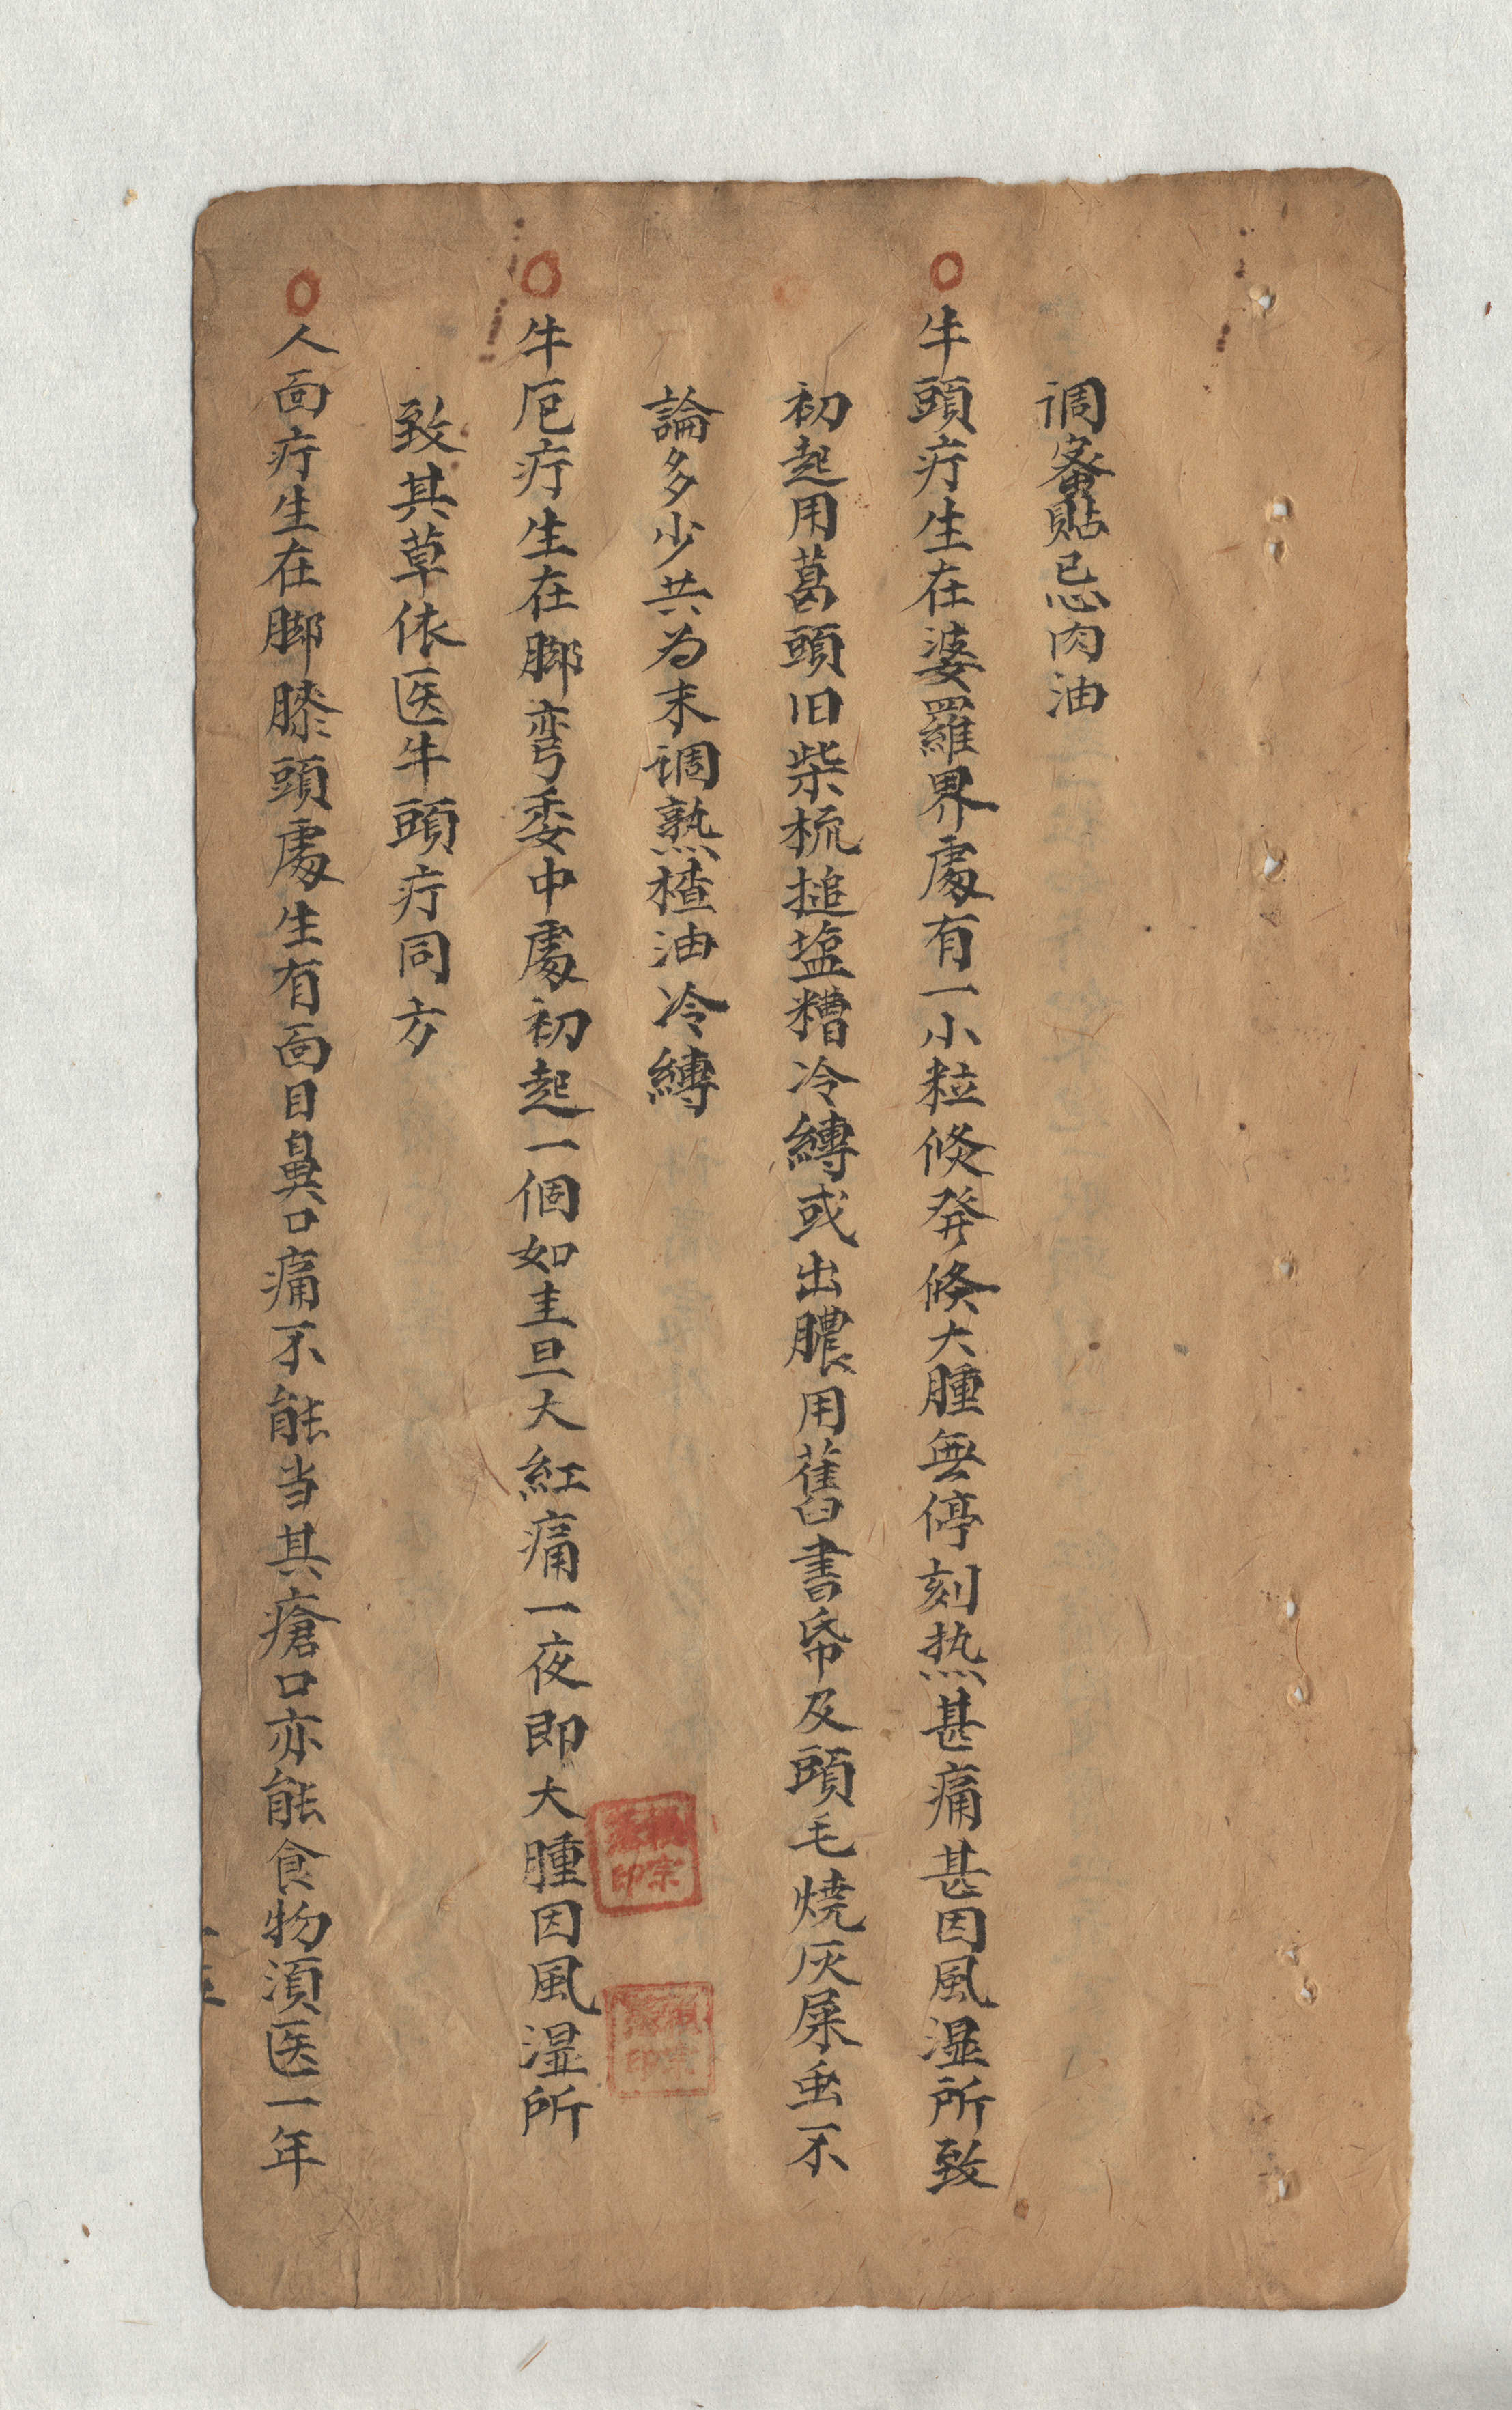 调蜜貼忌肉油
牛頭疔生在婆羅界處有一小粒倐發倐大腫無停刻热甚痛甚因風湿所致
初起用葛頭旧柴梳搥塩糟冷縳或出膿用舊書帋及頭毛燒灰屎虫不
論多少共为末调熟楂油冷縳
牛厄疔生在脚弯委中處初起一個如圭旦大紅痛一夜即大腫因風湿所
致其草依医牛頭疔同方
人面疔生在脚膝頭處生有面目鼻口痛不能当其瘡口亦能食物湏医一年